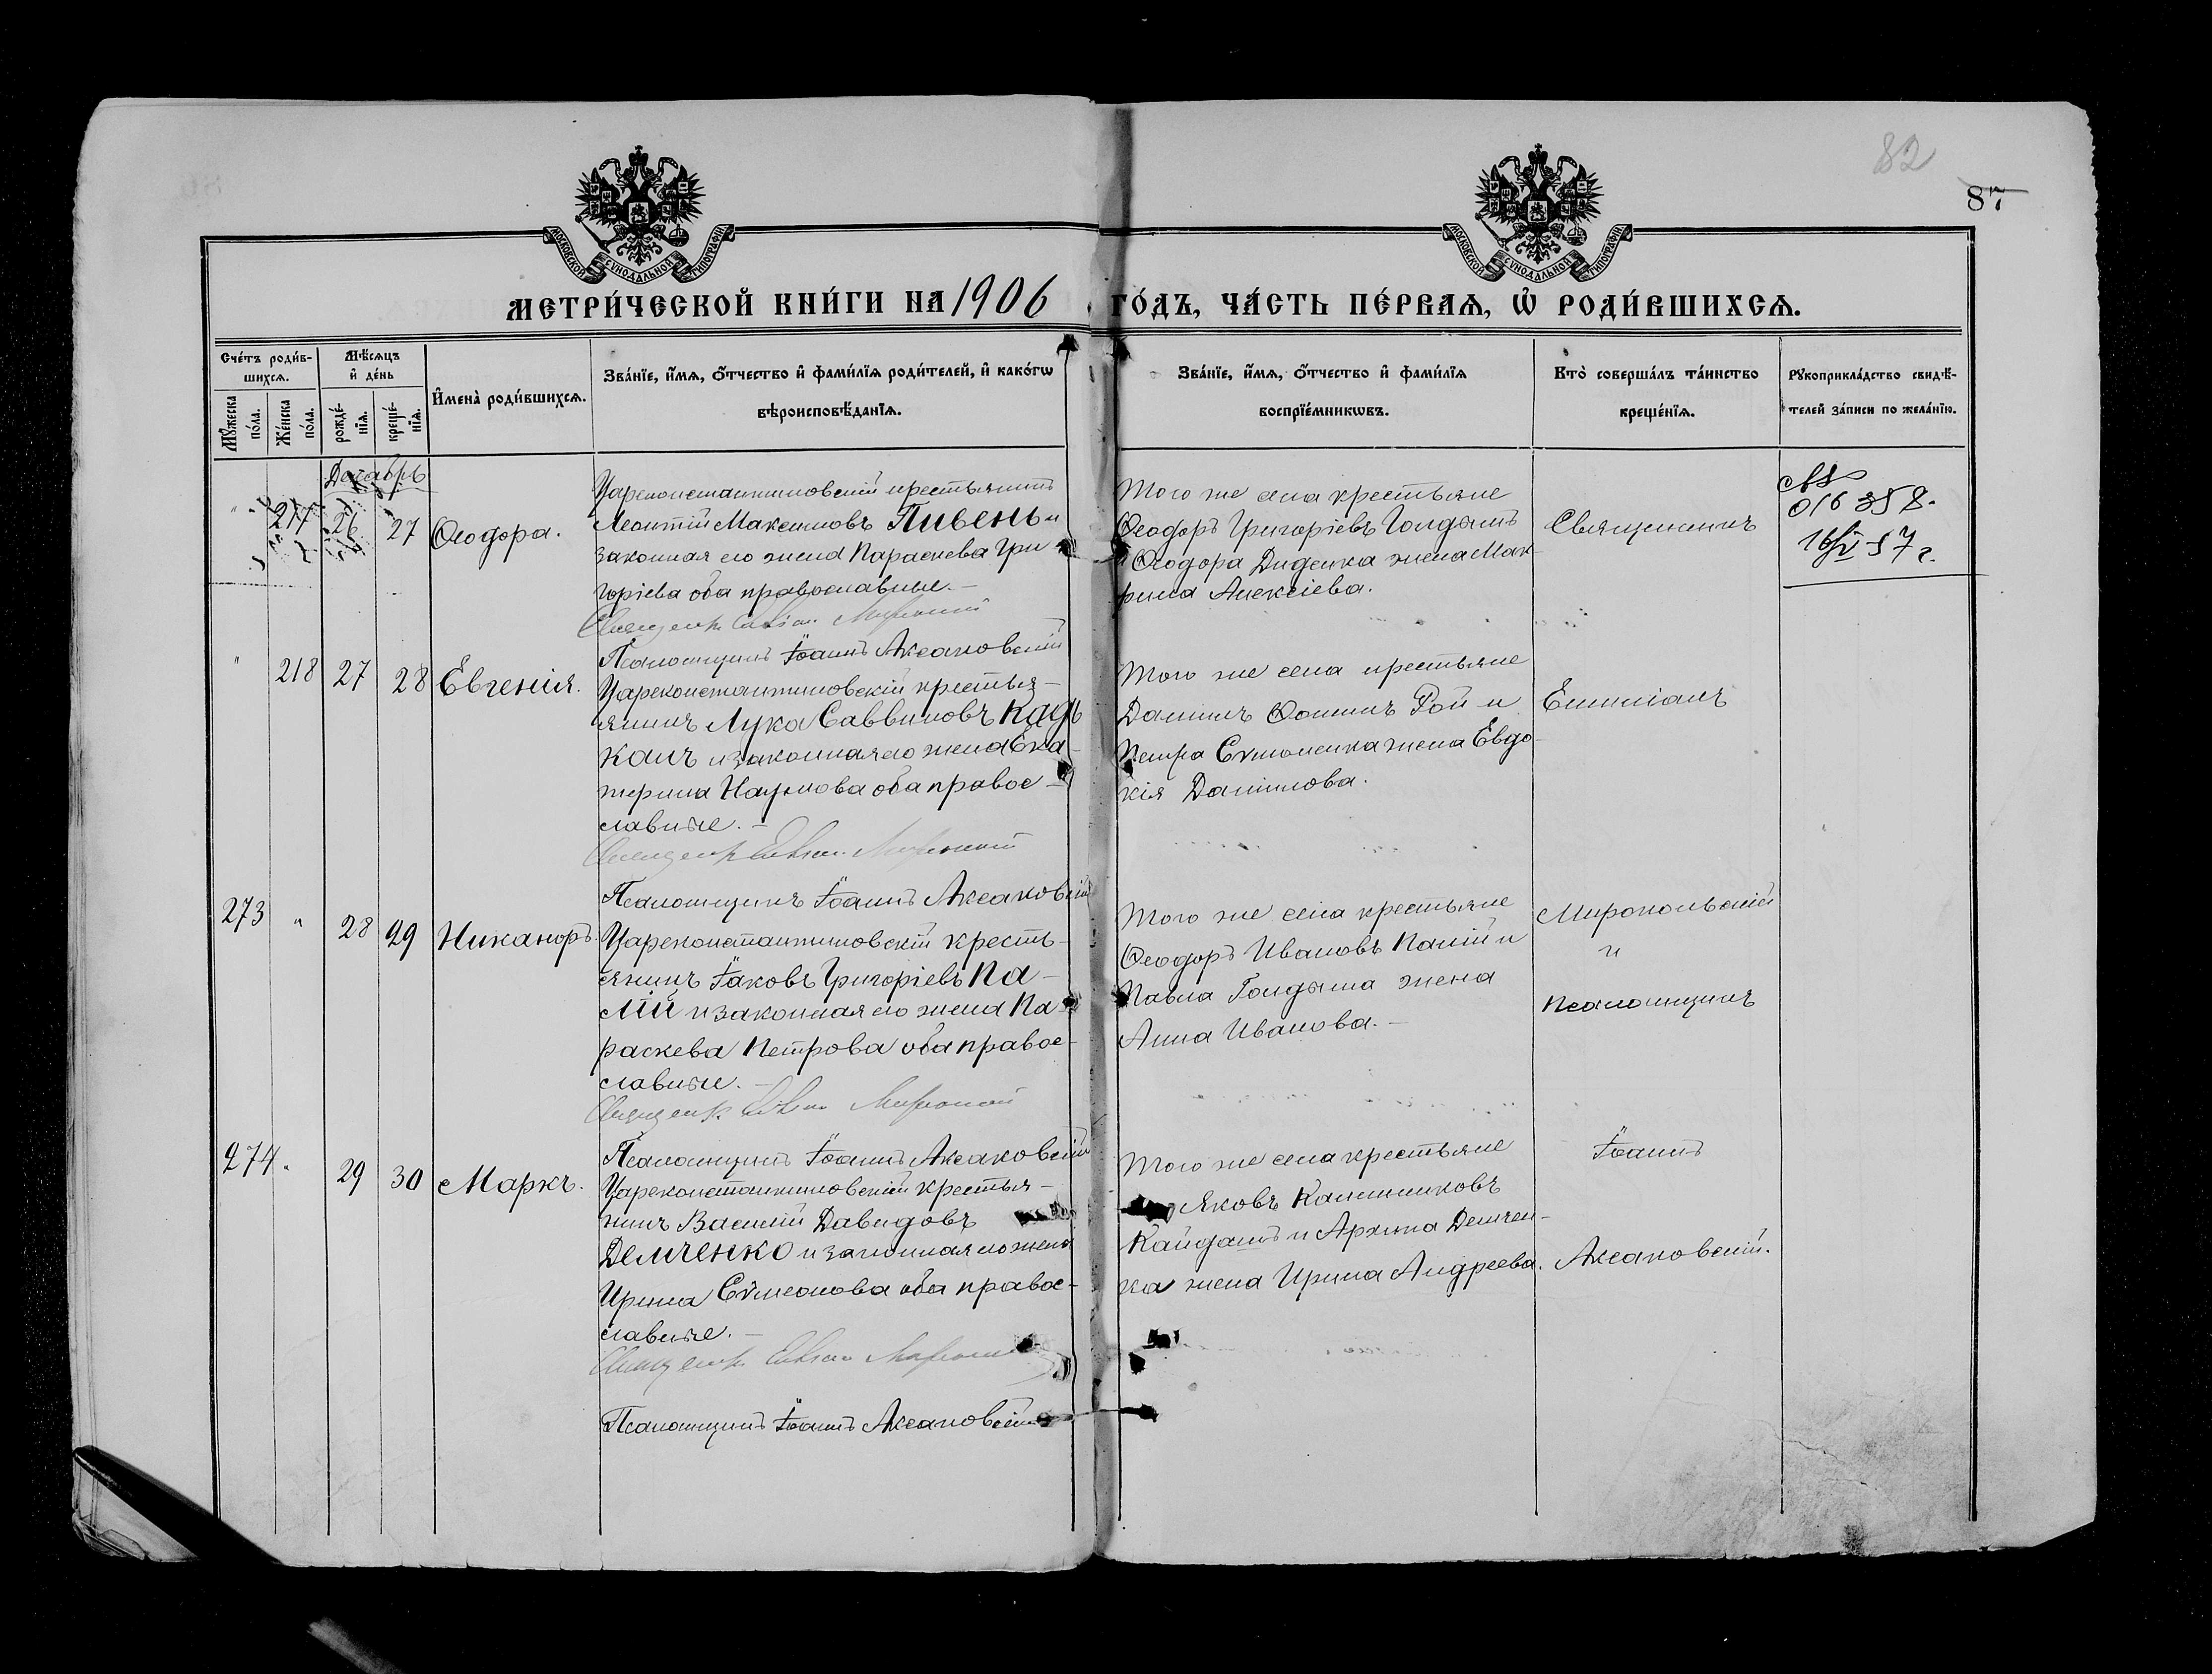 82
87
МОСКОВСКОЙ СѴНОДАЛЬНОЙ ТИПОГРАФІИ
МОСКОВСКОЙ СѴНОДАЛЬНОЙ ТИПОГРАФІИ
МЕТРИ́ЧЕСКОЙ КНИ́ГИ НА 1906 ГО́ДЪ, ЧА́СТЬ ПЕ́РВАѦ, Ѡ҆ РОДИ́ВШИХСѦ.
Сче́тъ роди́в-
шихсѧ.
Мꙋ́жеска по́ла.
Же́нска по́ла.
Мѣ́сѧцъ
и҆ де́нь
рожде́-
нїѧ.
креще́-
нїѧ.
И҆мена̀ роди́вшихсѧ.
Зва́нїе, и҆́мѧ, ѻ҆́тчество и҆ фами́лїѧ роди́телей, и҆ како́гѡ
вѣроисповѣ́данїѧ.
Зва́нїе, и҆́мѧ, ѻ҆́тчество и҆ фами́лїѧ
воспрїе́мникѡвъ.
Кто̀ соверша́лъ та́инство
креще́нїѧ.
Рꙋкоприкла́дство свидѣ́-
телей за́писи по жела́нїю.
Декабрь
" 217 26 27 Ѳеодора.
Цареконстантиновскій крестьянинъ
Леонтій Максимовъ Пивень и
законная его жена Параскева Гри-
горіева оба православные.-
Псаломщикъ Іоаннъ Аксаковскій
Того же села крестьяне
Ѳеодоръ Григоріевъ Голдышъ
и Ѳеодора Диденка жена Мак-
рина Алексіева.
Священникъ
016358.
" 218 27 28 Евгенія.
Цареконстантиновскій крестья-
янинъ Лука Саввиновъ Кадь
канъ и законная его жена Ека-
терина Наумова оба правос-
лавные.-
Псаломщикъ Іоаннъ Аксаковскій
Того же села крестьяне
Даніилъ Ѳоминъ Рой и
Петра Сѵмоненка жена Евдо-
кія Даніилова.
Емиліанъ
273 " 28 29 Никаноръ.
Цареконстантиновскій кресть-
янинъ Іаковъ Григоріевъ Па-
лій и законная его жена Па-
раскева Петрова оба правос-
лавные.-
Псаломщикъ Іоаннъ Аксаковскій
Того же села крестьяне
Ѳеодоръ Ивановъ Палій и
Павла Голдыша жена
Анна Иванова.-
Миропольскій
и
псаломщикъ
274 " 29 30 Маркъ.
Цареконстантиновскій крестья-
нинъ Василій Давидовъ
Демченко и законная его жена
Ирина Сѵмеонова оба правос-
лавные.-
Псаломщикъ Іоаннъ Аксаковскій
Того же села крестьяне
Яковъ Калинниковъ
Кайдашъ и Архипа Демчен-
ка жена Ирина Андреева.
Іоаннъ
Аксаковскій.